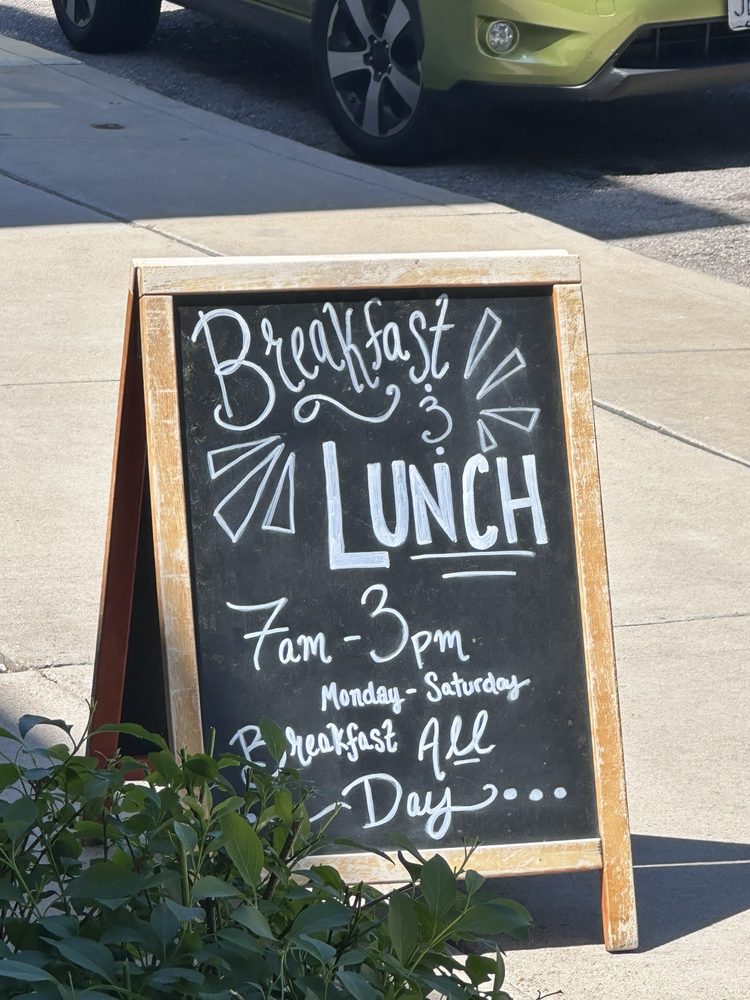 Breakfast
&
LUNCH
7am - 3pm
Monday - Saturday
Breakfast All
Day...